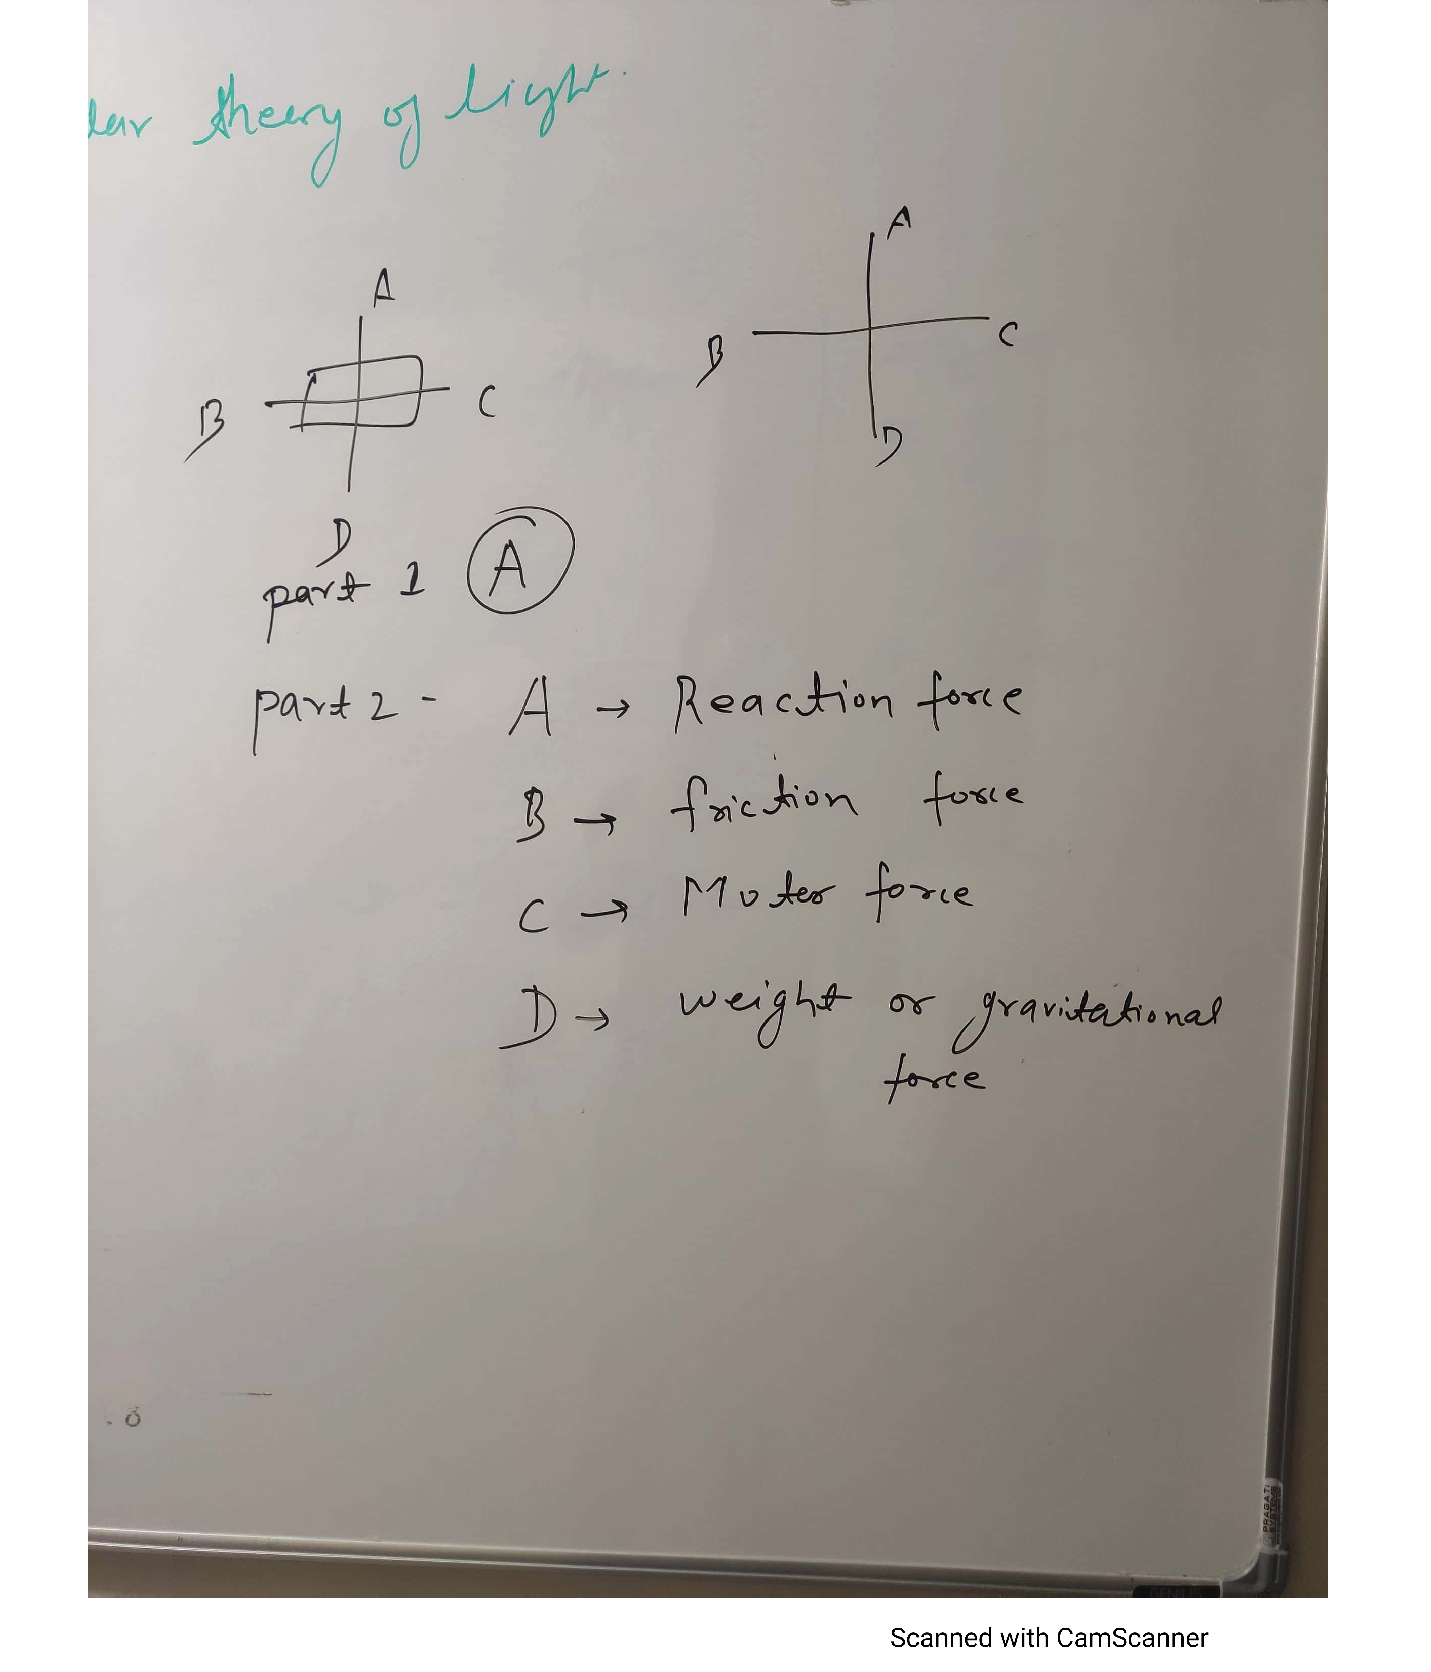 lar theory of light.
A
A
B
C
B
C
D
D
part 1 A
part 2 - A → Reaction force
B → friction force
C → Moter force
D → weight or gravitational
force
PRAGATI
SYSTEMS
Scanned with CamScanner